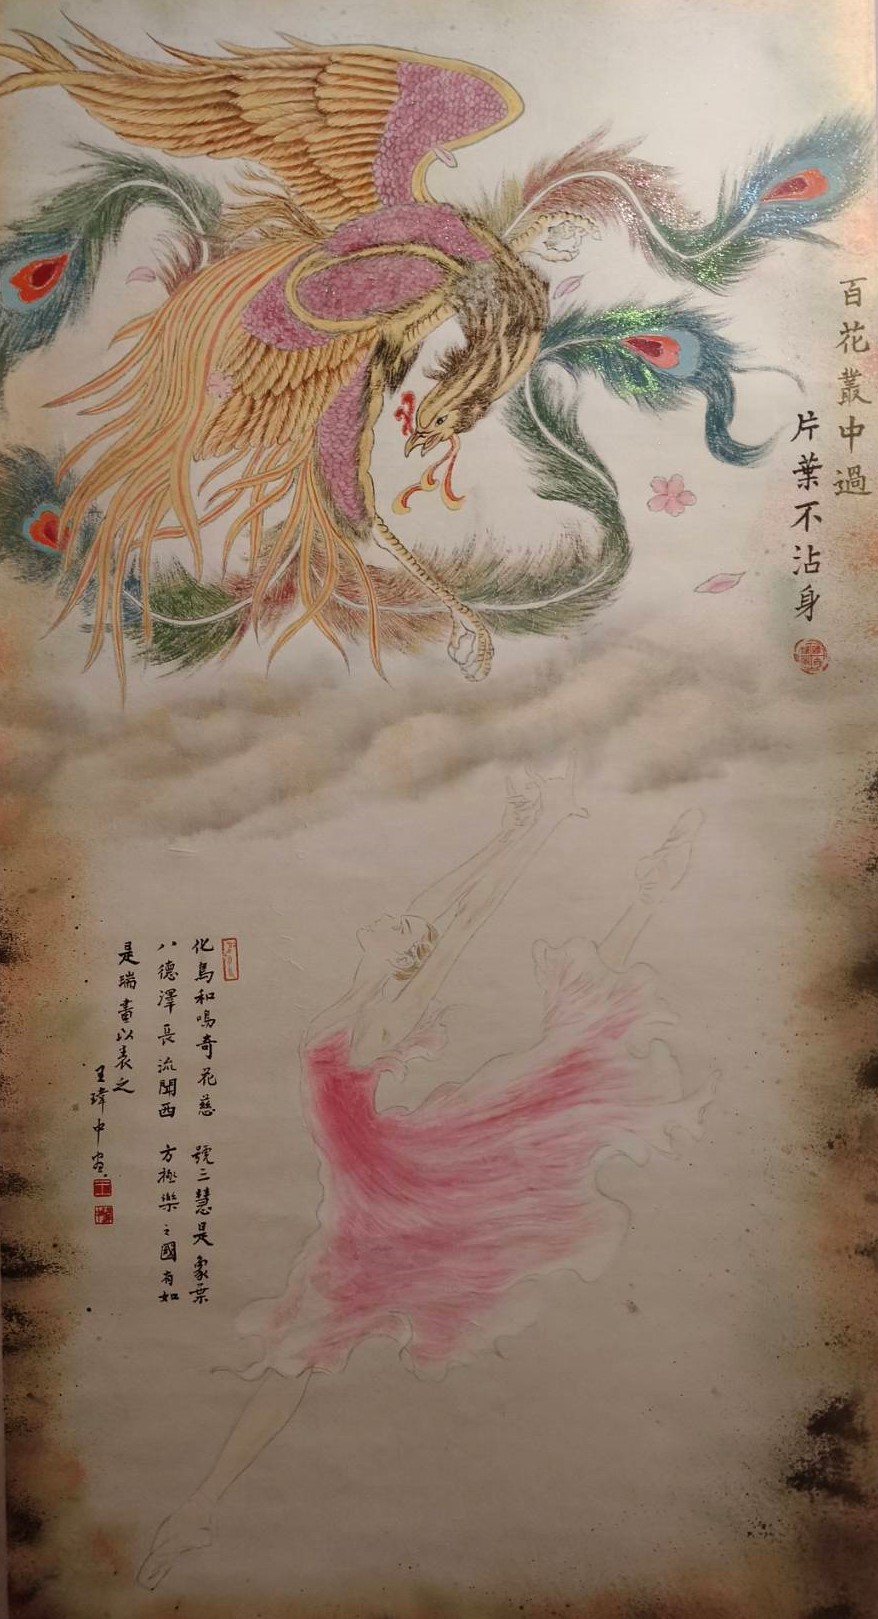 百花叢中過
片葉不沾身
化鳥和鳴奇花慈 號三慧是象葉
八德澤長流聞西 方極樂之國有如
是瑞畫以表之
王瑋中畫